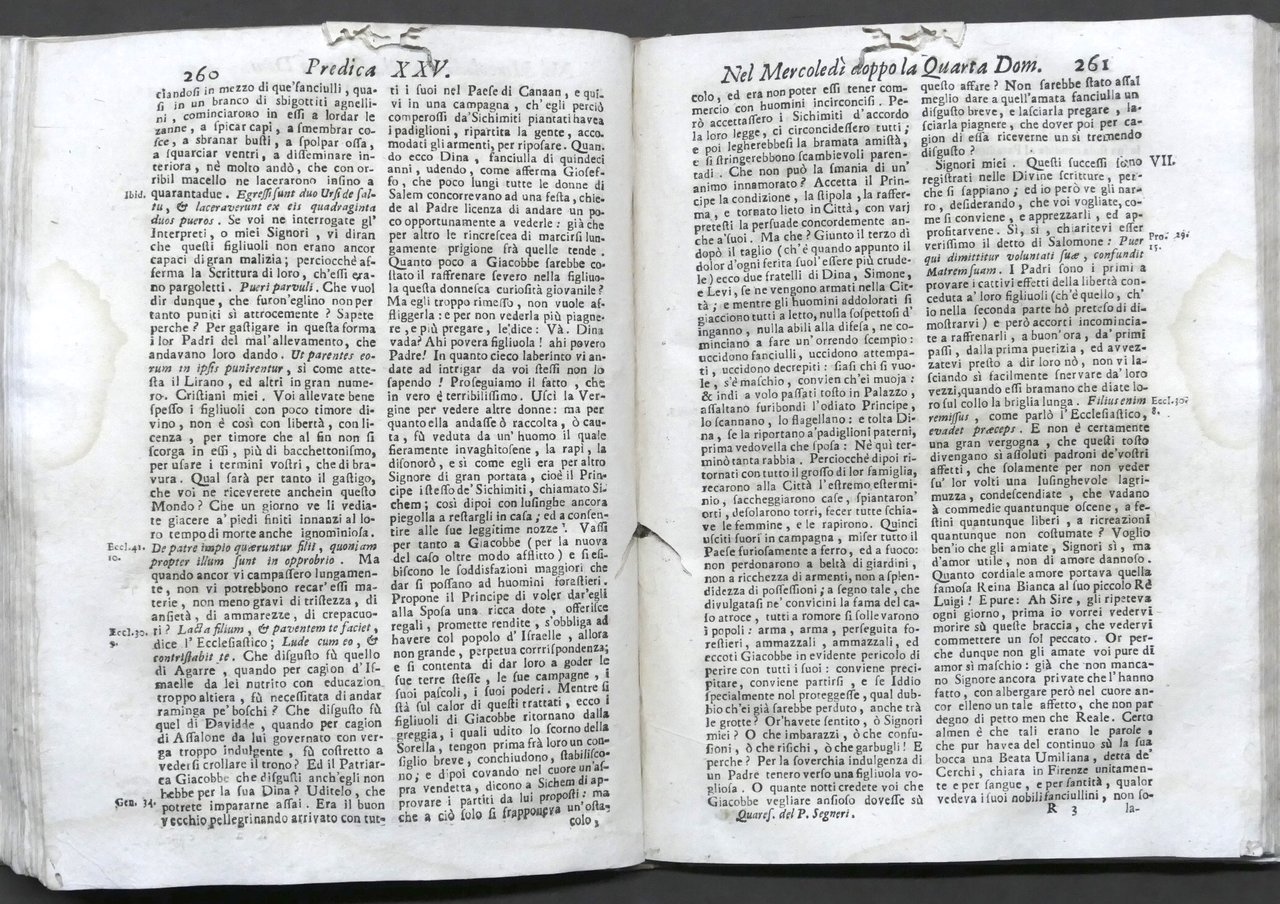 260
Predica XXV.
ciandosi in mezzo di que'fanciulli, qua-
si in un branco di sbigottiti agnelli-
ni, cominciarono in essi a lordar le
zanne, a spicar capi, a smembrar co-
sce, a sbranar busti, a spolpar ossa,
a squarciar ventri, a disseminare in-
teriora, nè molto andò, che con or-
ribil macello ne lacerarono insino a
Ibid. quarantadue. Egressi sunt duo Ursi de sal-
tu, & laceraverunt ex eis quadraginta
duos pueros. Se voi ne interrogate gl'
Interpreti, o miei Signori, vi diran
che questi figliuoli non erano ancor
capaci di gran malizia; perciocchè af-
ferma la Scrittura di loro, ch'essi era-
no pargoletti. Pueri parvuli. Che vuol
dir dunque, che furon'eglino non per
tanto puniti sì atrocemente? Sapete
perche? Per gastigare in questa forma
i lor Padri del mal'allevamento, che
andavano lor dando. Ut parentes eo-
rum in ipsis punirentur, sì come atte-
sta il Lirano, ed altri in gran nume-
ro. Cristiani miei. Voi allevate bene
spesso i figliuoli con poco timore di-
vino, non è così con libertà, con li-
cenza, per timore che al fin non si
scorga in essi, più di bacchettonismo,
per usare i termini vostri, che di bra-
vura. Qual sarà per tanto il gastigo,
che voi ne riceverete anchein questo
Mondo? Che un giorno ve li vedia-
te giacere a'piedi finiti innanzi al lo-
ro tempo di morte anche ignominiosa.
Eccl. 41. 10. De patre impio quæruntur filii, quoniam
propter illum sunt in opprobrio. Ma
quando ancor vi campassero lungamen-
te, non vi potrebbono recar'essi ma-
terie, non meno gravi di tristezza, di
ansietà, di ammarezze, di crepacuo-
Eccl. 30. 9. ri? Lacta filium, & paventem te faciet,
dice l'Ecclesiastico; Lude cum eo, &
contristabit te. Che disgusto fù quello
di Agarre, quando per cagion d'Is-
maelle da lei nutrito con educazion
troppo altiera, fù necessitata di andar
raminga pe'boschi? Che disgusto fù
quel di Davidde, quando per cagion
di Assalone da lui governato con ver-
ga troppo indulgente, fù costretto a
vedersi crollare il trono? Ed il Patriar-
ca Giacobbe che disgusti anch'egli non
hebbe per la sua Dina? Uditelo, che
Gen. 34. potrete impararne assai. Era il buon
vecchio pellegrinando arrivato con tut-
ti i suoi nel Paese di Canaan, e qui-
vi in una campagna, ch'egli perciò
comperossi da'Sichimiti piantati havea
i padiglioni, ripartita la gente, acco-
modati gli armenti, per riposare. Quan-
do ecco Dina, fanciulla di quindeci
anni, udendo, come afferma Giosef-
fo, che poco lungi tutte le donne di
Salem concorrevano ad una festa, chie-
de al Padre licenza di andare un po-
co opportunamente a vederle: già che
per altro le rincresce a di marcirsi lun-
gamente prigione frà quelle tende.
Quanto poco a Giacobbe sarebbe co-
stato il raffrenare severo nella figliuo-
la questa donnesca curiosità giovanile?
Ma egli troppo rimesso, non vuole af-
fliggerla: e per non vederla più piagne-
re, e più pregare, le dice: Và. Dina
vada? Ahi povera figliuola! ahi povero
Padre! In quanto cieco laberinto vi an-
date ad intrigar da voi stessi non lo
sapendo! Proseguiamo il fatto, che
in vero è terribilissimo. Uscì la Ver-
gine per vedere altre donne: ma per
quanto ella andasse ò raccolta, ò cau-
ta, fù veduta da un'huomo il quale
fieramente invaghitosene, la rapì, la
disonorò, e sì come egli era per altro
Signore di gran portata, cioè il Prin-
cipe istesso de'Sichimiti, chiamato Si-
chem; così dipoi con lusinghe ancora
piegolla a restargli in casa; ed a consen-
tire alle sue legittime nozze. Vassi
per tanto a Giacobbe (per la nuova
del caso oltre modo afflitto) e si esi-
biscono le soddisfazioni maggiori che
dar si possano ad huomini forastieri.
Propone il Principe di voler dar'egli
alla Sposa una ricca dote, offerisce
regali, promette rendite, s'obbliga ad
havere col popolo d'Israelle, allora
non grande, perpetua corrrispondenza;
e si contenta di dar loro a goder le
sue terre stesse, le sue campagne, i
suoi pascoli, i suoi poderi. Mentre si
stà sul calor di questi trattati, ecco i
figliuoli di Giacobbe ritornano dalla
greggia, i quali udito lo scorno della
Sorella, tengon prima frà loro un con-
siglio breve, conchiudono, stabilisco-
no; e dipoi covando nel cuore un'as-
pra vendetta, dicono a Sichem di ap-
provare i partiti da lui proposti: ma
che a ciò solo si frapponeva un'osta-
colo,
Nel Mercoledì doppo la Quarta Dom.
261
colo, ed era non poter essi tener com-
mercio con huomini incirconcisi. Pe-
rò accettassero i Sichimiti d'accordo
la loro legge, ci circoncidessero tutti;
e poi legherebbesi la bramata amistà,
e si stringerebbono scambievoli paren-
tadi. Che non può la smania di un'
animo innamorato? Accetta il Prin-
cipe la condizione, la stipola, la raffer-
ma, e tornato lieto in Città, con varj
pretesti la persuade concordemente an-
che a'suoi. Ma che? Giunto il terzo dì
dopo il taglio (ch'è quando appunto il
dolor d'ogni ferita suol'essere più crude-
le) ecco due fratelli di Dina, Simone,
e Levi, se ne vengono armati nella Cit-
tà; e mentre gli huomini addolorati si
giacciono tutti a letto, nulla sospettosi d'
inganno, nulla abili alla difesa, ne co-
minciano a fare un'orrendo scempio:
uccidono fanciulli, uccidono attempa-
ti, uccidono decrepiti: siasi chi si vuo-
le, s'è maschio, convien ch'ei muoja:
& indi a volo passati tosto in Palazzo,
assaltano furibondi l'odiato Principe,
lo scannano, lo flagellano: e tolta Di-
na, se la riportano a'padiglioni paterni,
prima vedovella che sposa: Nè quì ter-
minò tanta rabbia. Perciocchè dipoi ri-
tornati con tutto il grosso di lor famiglia,
recarono alla Città l'estremo estermi-
nio, saccheggiarono case, spiantaron'
orti, desolarono torri, fecer tutte schia-
ve le femmine, e le rapirono. Quinci
usciti fuori in campagna, miser tutto il
Paese furiosamente a ferro, ed a fuoco:
non perdonarono a beltà di giardini,
non a ricchezza di armenti, non a splen-
didezza di possessioni; a segno tale, che
divulgatasi ne'convicini la fama del ca-
so atroce, tutti a romore si sollevarono
i popoli: arma, arma, perseguita fo-
restieri, ammazzali, ammazzali, ed
eccoti Giacobbe in evidente pericolo di
perire con tutti i suoi: conviene preci-
pitare, conviene partirsi, e se Iddio
specialmente nol proteggesse, qual dub-
bio ch'ei già sarebbe perduto, anche trà
le grotte? Or'havete sentito, ò Signori
miei? O che imbarazzi, ò che confu-
sioni, ò che risichi, ò che garbugli! E
perche? Per la soverchia indulgenza di
un Padre tenero verso una figliuola vo-
gliosa. O quante notti credete voi che
Giacobbe vegliare ansioso dovesse sù
Quares. del P. Segneri.
questo affare? Non sarebbe stato assai
meglio dare a quell'amata fanciulla un
disgusto breve, e lasciarla pregare, la-
sciarla piagnere, che dover poi per ca-
gion di essa riceverne un sì tremendo
disgusto?
Signori miei. Questi successi sono VII.
registrati nelle Divine scritture, per-
che si sappiano; ed io però ve gli nar-
ro, desiderando, che voi vogliate, co-
me si conviene, e apprezzarli, ed ap-
profittarvene. Sì, sì, chiaritevi esser
verissimo il detto di Salomone: Puer Pro. 29. 15.
qui dimittitur voluntati suæ, confundit
Matrem suam. I Padri sono i primi a
provare i cattivi effetti della libertà con-
ceduta a' loro figliuoli (ch'è quello, ch'
io nella seconda parte hò preteso di di-
mostrarvi) e però accorti incomincia-
te a raffrenarli, a buon'ora, da' primi
passi, dalla prima puerizia, ed avvez-
zatevi presto a dir loro nò, non vi la-
sciando sì facilmente snervare da' loro
vezzi, quando essi bramano che diate lo-
ro sul collo la briglia lunga. Filius enim Eccl. 30. 8.
remissus, come parlò l'Ecclesiastico,
evadet præceps. E non è certamente
una gran vergogna, che questi tosto
divengano sì assoluti padroni de'vostri
affetti, che solamente per non veder
su' lor volti una lusinghevole lagri-
muzza, condescendiate, che vadano
à commedie quantunque oscene, a fe-
stini quantunque liberi, a ricreazioni
quantunque non costumate? Voglio
ben'io che gli amiate, Signori sì, ma
d'amor utile, non di amore dannoso.
Quanto cordiale amore portava quella
famosa Reina Bianca al suo piccolo Rè
Luigi! E pure: Ah Sire, gli ripeteva
ogni giorno, prima io vorrei vedervi
morire sù queste braccia, che vedervi
commettere un sol peccato. Or per-
che dunque non gli amate voi pure di
amor sì maschio: già che non manca-
no Signore ancora private che l'hanno
fatto, con albergare però nel cuore an-
cor elleno un tale affetto, che non par
degno di petto men che Reale. Certo
almen è che tali erano le parole,
che pur havea del continuo sù la sua
bocca una Beata Umiliana, detta de'
Cerchi, chiara in Firenze unitamen-
te e per sangue, e per santità, qualor
vedeva i suoi nobili fanciullini, non so-
R 3
la-